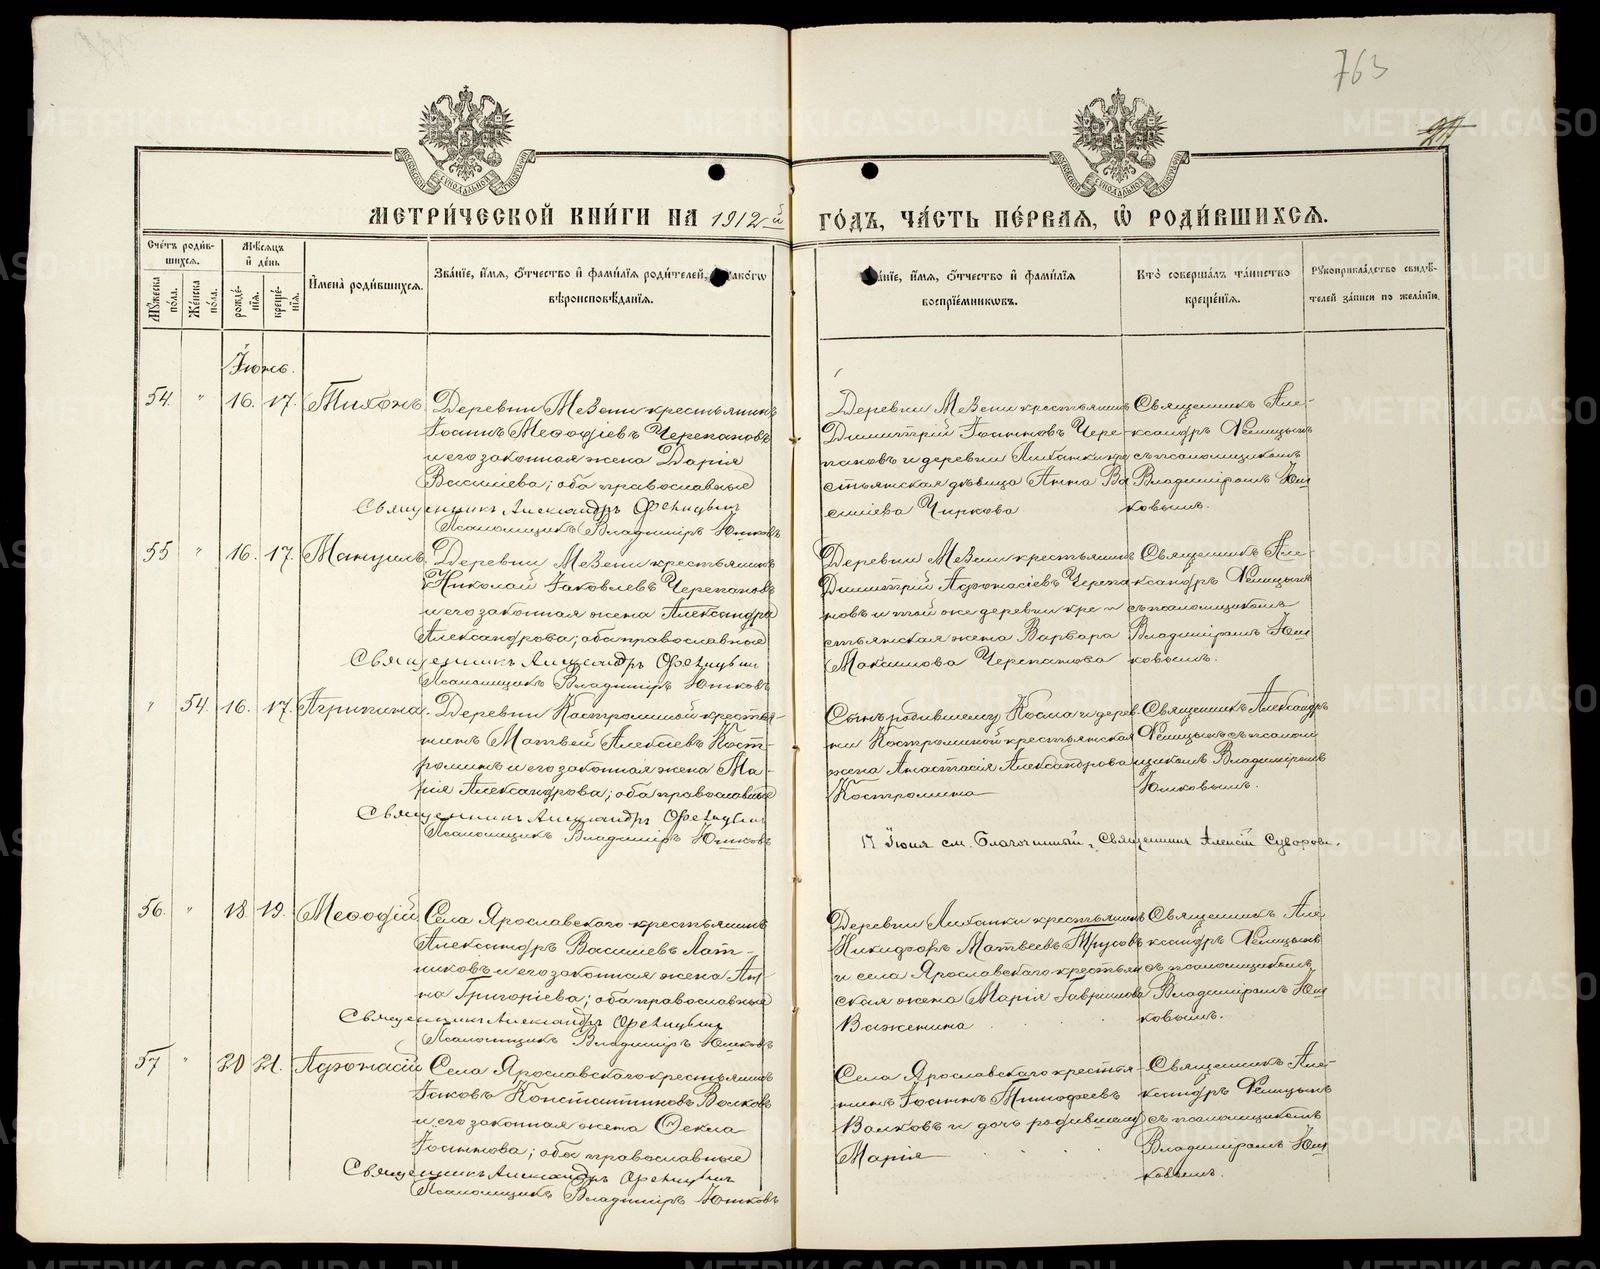 763
24
МЕТРИ́ЧЕСКОЙ КНИ́ГИ НА 1912й
ГО́ДЪ, ЧА́СТЬ ПЕ́РВАЯ, Ѽ РОДИ́ВШИХСѦ.
Сче́тъ роди́в-
шихсѧ.
Мѣ́сѧцъ
и҆ де́нь
Мꙋ́жеска по́ла.
Же́нска по́ла.
рожде́-нїѧ.
креще́-нїѧ.
И҆мена̀ роди́вшихсѧ.
Зва́нїе, и҆́мѧ, ѻ҆́тчество и҆ фами́лїѧ роди́телей,
вѣроисповѣ́данїѧ.
и҆́мѧ, ѻ҆́тчество и҆ фами́лїѧ
воспрїе́мникѡвъ.
Кто̀ соверша́лъ та́инство
креще́нїѧ.
Рꙋкоприкла́дство свидѣ́-
телей за́писи по жела́нїю.
Іюнь.
54. " 16. 17. Тихонъ.
Деревни Мезени крестьянинъ
Іоаннъ Меѳодіевъ Черепановъ
и его законная жена Дарія
Васильева; оба православные
Священникъ Александръ Фелицынъ
Псаломщикъ Владиміръ Юшковъ
Деревни Мезени крестьянинъ
Димитрій Іоанновъ Чере-
пановъ и деревни Либанки кре
стьянская дѣвица Анна Ва
сильева Чиркова
Священникъ Але-
ксандръ Фелицынъ
съ псаломщикомъ
Владиміромъ Юш
ковымъ.
55 " 16. 17. Мануилъ.
Деревни Мезени крестьянинъ
Николай Іаковлевъ Черепановъ
и его законная жена Александра
Александрова; оба православные
Священникъ Александръ Фелицынъ
Псаломщикъ Владиміръ Юшковъ
Деревни Мезени крестьянинъ
Димитрій Аѳонасіевъ Черепа
новъ и той же деревни кре-
стьянская жена Варвара
Максимова Черепанова
Священникъ Але-
ксандръ Фелицынъ
съ псаломщикомъ
Владиміромъ Юш
ковымъ.
" 54. 16. 17. Агрипина.
Деревни Костроминой крестья-
нинъ Матвей Алексіевъ Кост-
роминъ и его законная жена Ма-
рія Александрова; оба православные
Священникъ Александръ Фелицынъ
Псаломщикъ Владиміръ Юшковъ
Сынъ родившему Косма и дерев
ни Костроминой крестьянская
жена Анастасія Александрова
Костромина
Священникъ Александръ
Фелицынъ съ псалом
щикомъ Владиміромъ
Юшковымъ.
17 Іюня см. Благочинный, Священникъ Алексій Суворовъ.
56. " 18. 19. Меѳодій
Села Ярославскаго крестьянинъ
Александръ Васильевъ Лат-
никовъ и его законная жена Ан-
на Григоріева; оба православные
Священникъ Александръ Фелицынъ
Псаломщикъ Владиміръ Юшковъ
Деревни Либанки крестьянинъ
Никифоръ Матвеевъ Трусовъ
и села Ярославскаго крестьян
ская жена Марія Гавриилова
Важенина
Священникъ Але
ксандръ Фелицынъ
съ псаломщикомъ
Владиміромъ Юш
ковымъ.
57 " 20 21. Аѳонасій
Села Ярославскаго крестьянинъ
Іаковъ Константиновъ Волковъ
и его законная жена Ѳекла
Іоаннова; оба православные
Священникъ Александръ Фелицынъ
Псаломщикъ Владиміръ Юшковъ
Села Ярославскаго крестья-
нинъ Іоаннъ Тимофеевъ
Волковъ и дочь родившему
Марія
Священникъ Але-
ксандръ Фелицынъ
съ псаломщикомъ
Владиміромъ Юш
ковымъ.
METRIKI.GASO-URAL.RU